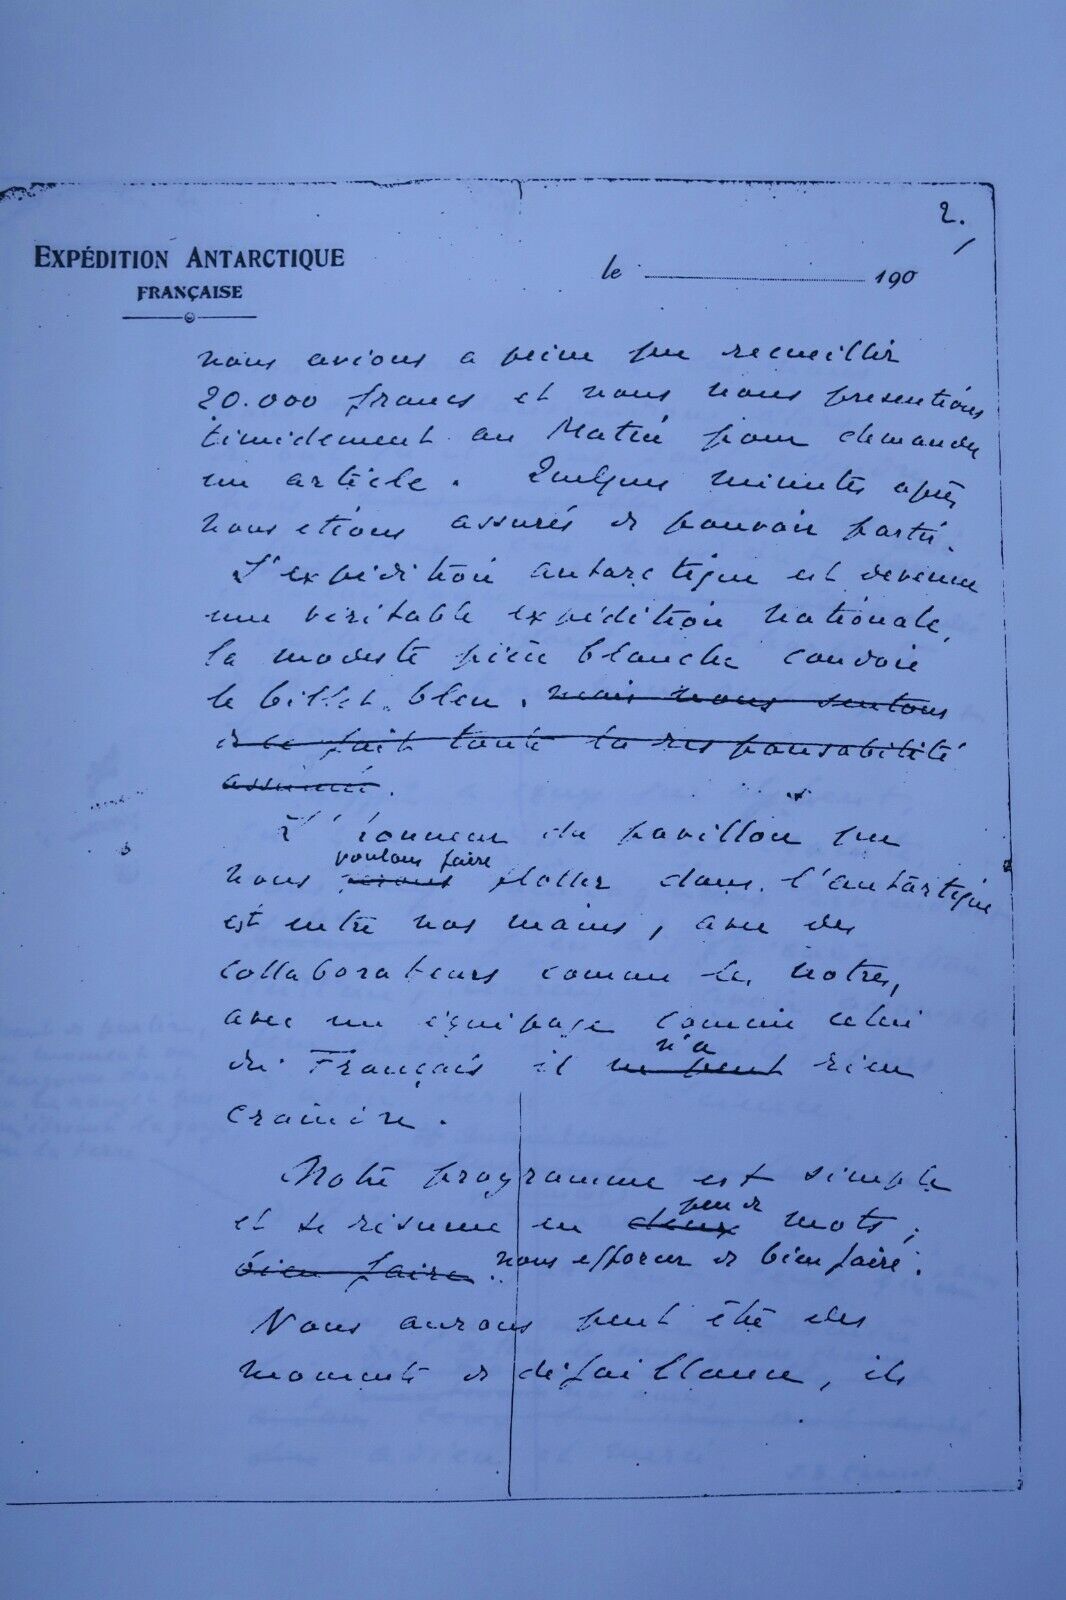 2.
EXPÉDITION ANTARCTIQUE
FRANÇAISE
le 190
nous avions a peine pu recueillir
20.000 francs et nous nous presentions
timidement au Matin pour demander
un article. Quelques minutes après
nous etions assurés de pouvoir partir.
L'expédition antarctique est devenue
une véritable expédition nationale,
la modeste pièce blanche coudoie
le billet bleu. mais nous sentons
de ce fait toute la responsabilité
assumée.
L'honneur du pavillon que
voulons faire
nous ferons flotter dans l'antartique
est entre nos mains, avec des
collaborateurs comme les notres,
avec un équipage comme celui
n'a
du Français il ne peut rien
craindre.
Notre programme est simple
peu de
et se résume en deux mots;
bien faire. nous efforcer de bien faire.
Nous aurons peut être des
moments de défaillance, ils